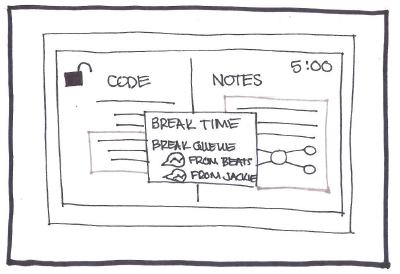 5:00
CODE
NOTES
BREAK TIME
BREAK QUEUE
FROM BEATS
FROM JACKIE